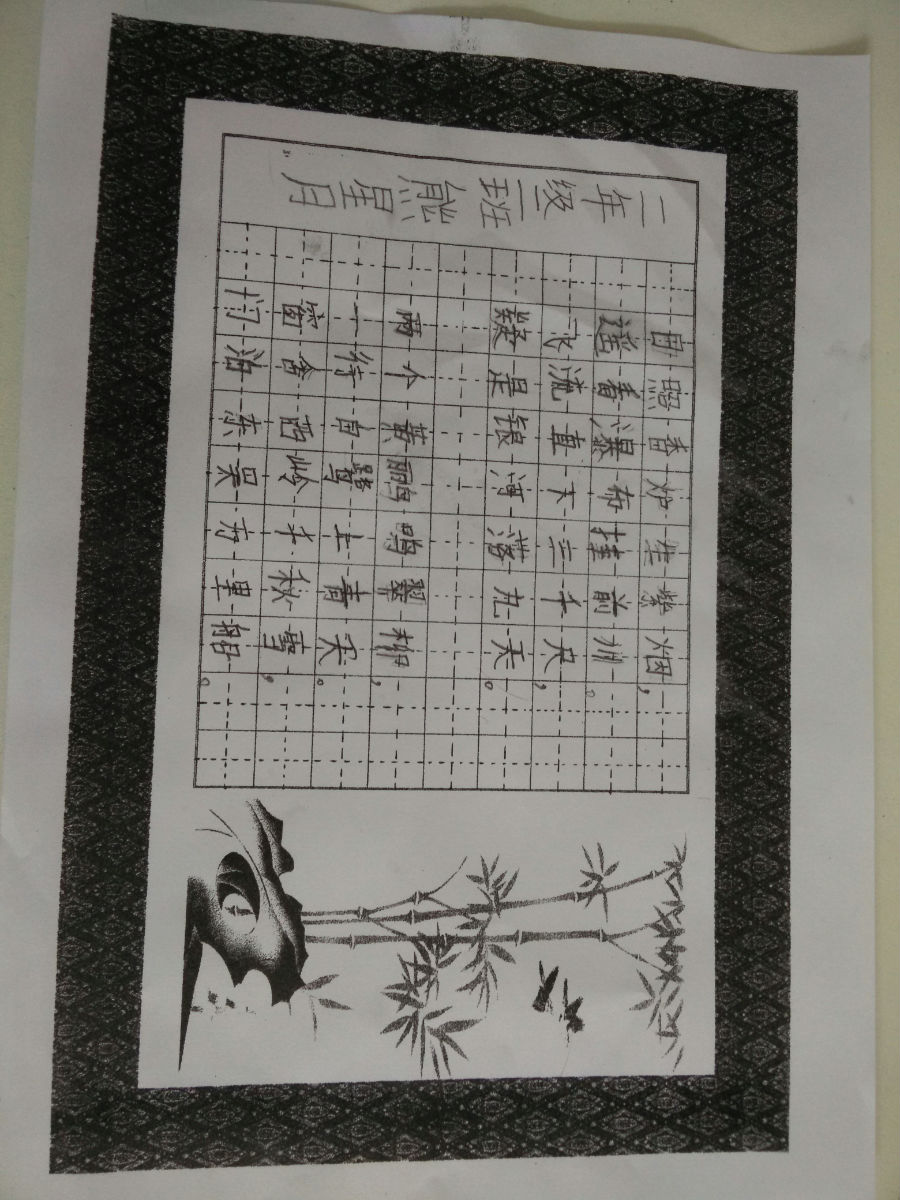 二年级二班熊星月
日照香炉生紫烟，
遥看瀑布挂前川。
飞流直下三千尺，
疑是银河落九天。
两个黄鹂鸣翠柳，
一行白鹭上青天。
窗含西岭千秋雪，
门泊东吴万里船。